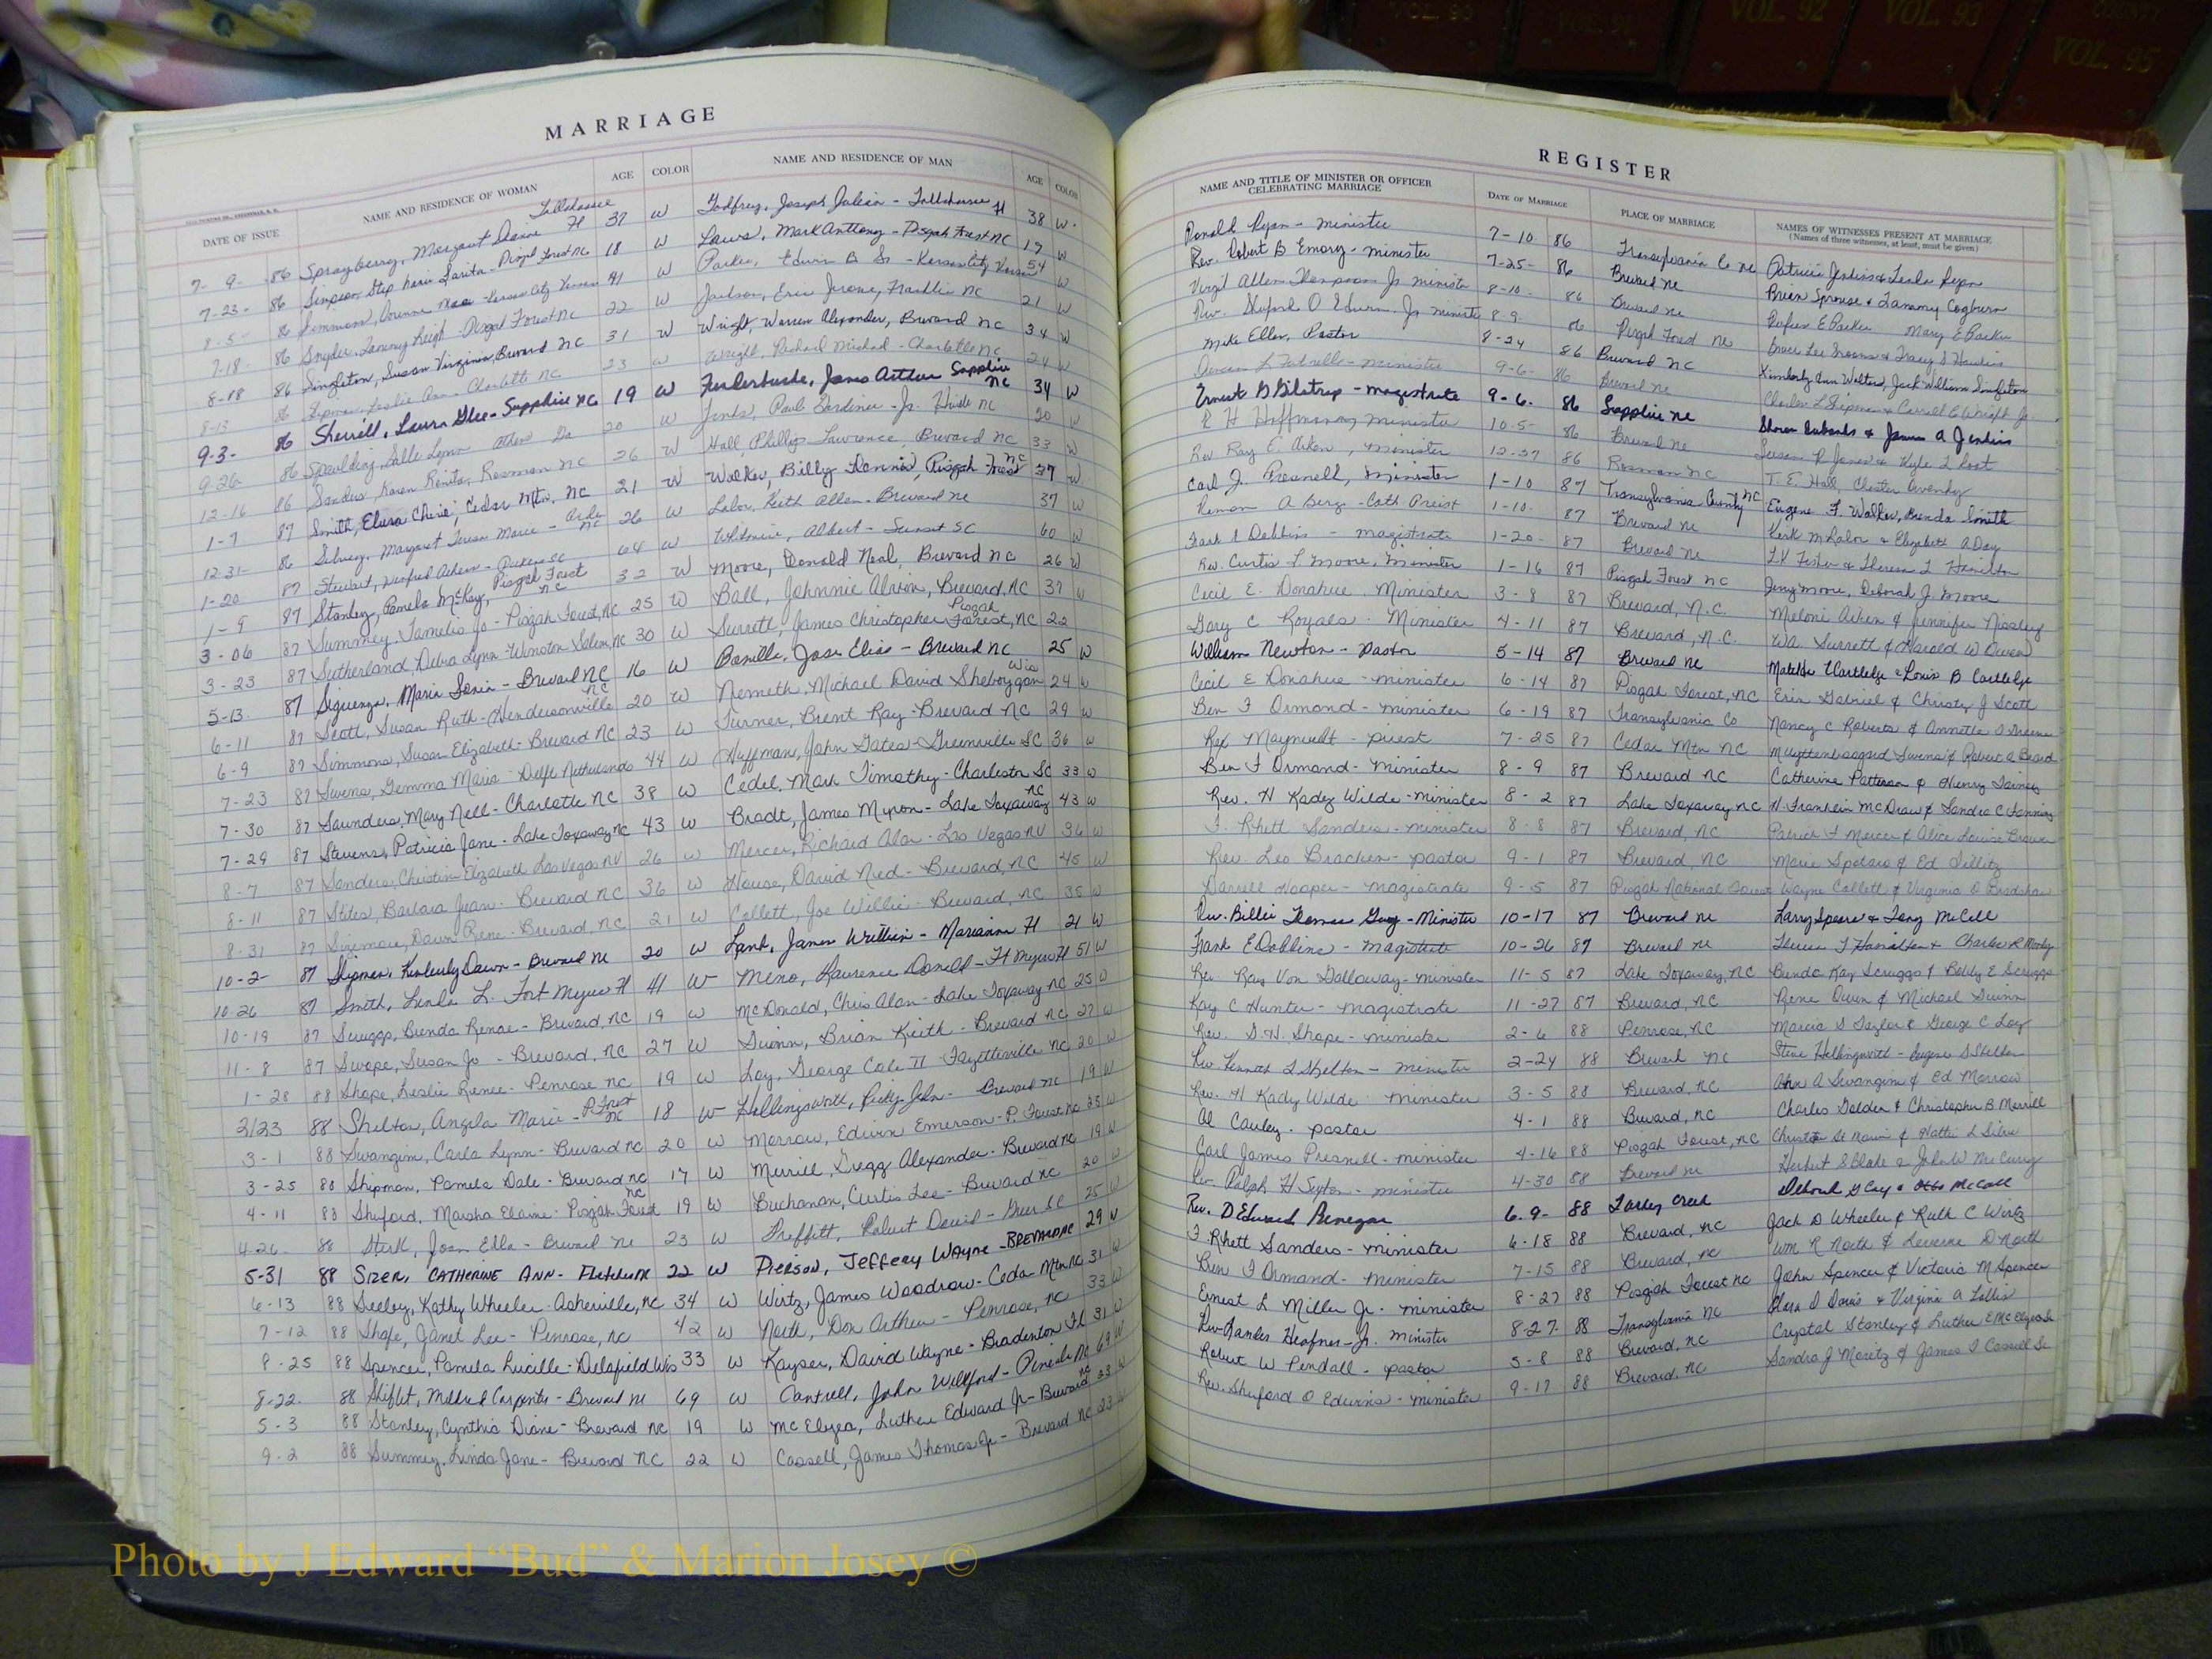 VOL. 90 VOL. 91 VOL. 92 VOL. 93 COUNTY VOL. 95
MARRIAGE
DATE OF ISSUE NAME AND RESIDENCE OF WOMAN AGE COLOR NAME AND RESIDENCE OF MAN AGE COLOR
7-9-86 Sprayberry, Margaret Tallahassee Fl 37 W Godfrey, Joseph Julian - Tallahassee Fl 38 W.
7-23-86 Simpson, Pisgah Forest NC 18 W Laws, Mark Anthony - Pisgah Forest NC 19 W
8-5- 86 Kansas 41 W Parker, Edwin B Sr - Kansas City Kansas 54 W
7-18-86 Snyder, Tammy Leigh - Pisgah Forest NC 22 W Jackson, Eric Jerome, Franklin NC 21 W
8-18 86 Singleton, Susan Virginia, Brevard NC 31 W Wright, Warren Alexander, Brevard NC 34 W
8-13 86 Shipman, Leslie Ann - Charlotte NC 23 W Wright, Richard Michael - Charlotte NC 24 W
9-3- 86 Sherrill, Laura - Sapphire NC 19 W James Arthur Sapphire NC 34 W
9-26- 86 Spaulding, Lynn Athens Ga 20 W Paul Gardiner Jr. NC 20 W
12-16 86 Sanders, Karen Renita, Rosman NC 26 W Hall, Phillip Lawrence, Brevard NC 33 W
1-7 87 Smith, Cherie, Cedar Mtn, NC 21 W Walker, Billy Dennis, Pisgah Forest NC 37 W
12-31- 86 Margaret Teresa Marie - NC 26 W Labor, Keith Allen - Brevard NC 37 W
1-20 87 Stewart, SC 64 W Albert - SC 60 W
1-9 87 Stanley, Pamela McKay, Pisgah Forest NC 32 W Moore, Donald Neal, Brevard NC 26 W
3-06 87 Summey, Jo - Pisgah Forest, NC 25 W Ball, Johnnie Alvin, Brevard, NC 37 W
3-23 87 Sutherland, Debra Lynn - Winston Salem, NC 30 W Surrett, James Christopher Pisgah Forest, NC 22
5-13- 87 Siguenza, Maria Sonia - Brevard NC 16 W Bonilla, Jose Elias - Brevard NC 25 W
6-11 87 Scott, Susan Ruth - Hendersonville NC 20 W Nemeth, Michael David Sheboygan Wis 24 W
6-9 87 Simmons, Susan Elizabeth - Brevard NC 23 W Turner, Brent Ray - Brevard NC 29 W
7-23 87 Swens, Gemma Maria - Delft Netherlands 44 W Huffman, John Gates - Greenville SC 36 W
7-30 87 Saunders, Mary Nell - Charlotte NC 38 W Cedel, Mark Timothy - Charleston SC 33 W
7-29 87 Stevens, Patricia Jane - Lake Toxaway NC 43 W Bradt, James Myron - Lake Toxaway NC 43 W
8-7 87 Sanders, Christin Elizabeth Las Vegas NV 26 W Mercer, Richard Alan - Las Vegas NV 36 W
8-11 87 Stites, Barbara Jean - Brevard NC 36 W House, David Ned - Brevard, NC 45 W
8-31 87 Sizemore, Dawn Rene - Brevard, NC 21 W Collett, Joe Willie - Brevard, NC 35 W
10-2- 87 Shipman, Kimberly Dawn - Brevard NC 20 W Lamb, James William - Marianna Fl 21 W
10-26 87 Smith, Linda L. Fort Myers Fl 41 W Meno, Laurence Donald - Ft Myers Fl 51 W
10-19 87 Scruggs, Brenda Renae - Brevard, NC 19 W McDonald, Chris Alan - Lake Toxaway NC 25 W
11-8 87 Swope, Susan Jo - Brevard, NC 27 W Guinn, Brian Keith - Brevard NC 27 W
1-28 88 Shope, Leslie Renee - Penrose NC 19 W Loy, George Cole II - Fayetteville NC 20 W
2/23 88 Shelton, Angela Marie - P. Forest NC 18 W Hollingsworth, Ricky John - Brevard NC 19 W
3-1 88 Swangim, Carla Lynn - Brevard NC 20 W Morrow, Edwin Emerson - P. Forest NC 25 W
3-25 88 Shipman, Pamela Dale - Brevard NC 17 W Merrill, Gregg Alexander - Brevard NC 19 W
4-11 88 Shuford, Marsha Elaine - Pisgah Forest NC 19 W Buchanan, Curtis Lee - Brevard NC 20 W
4-26- 88 Joan Ella - Brevard NC 23 W Robert David - Greer SC 25 W
5-31 88 SIZER, CATHERINE ANN - Fletcher NC 22 W PIERSON, JEFFERY WAYNE - BREVARD NC 29 W
6-13 88 Seeley, Kathy Wheeler - Asheville, NC 34 W Wirtz, James Woodrow - Cedar Mtn NC 31 W
7-12 88 Shope, Janet Lee - Penrose, NC 42 W North, Don Arthur - Penrose, NC 33 W
8-25 88 Spencer, Pamela Lucille - Delafield Wis 33 W Kayser, David Wayne - Bradenton Fl 31 W
8-22- 88 Shiflet, Mildred Carpenter - Brevard NC 69 W Cantrell, John Wilford - Pineville NC 69 W
5-3 88 Stanley, Cynthia Diane - Brevard NC 19 W McElyea, Luther Edward Jr - Brevard NC 23 W
9-2 88 Summey, Linda Jane - Brevard NC 22 W Cassell, James Thomas Jr - Brevard NC 23 W
REGISTER
NAME AND TITLE OF MINISTER OR OFFICER CELEBRATING MARRIAGE DATE OF MARRIAGE PLACE OF MARRIAGE NAMES OF WITNESSES PRESENT AT MARRIAGE (Names of three witnesses, at least, must be given)
Donald Ryan - minister 7-10 86 Transylvania Co NC Patricia Jenkins & Leslie Ryan
Rev. Robert B Emory - minister 7-25- 86 Brevard NC Brian Sprouse & Tammy Cogburn
Virgil Allen Thompson Jr minister 8-10- 86 Brevard NC Rufus E Parker Mary E Parker
Rev. Shuford O Edwins Jr minister 8-9 86 Pisgah Forest NC
Mike Ellen, Pastor 8-24 86 Brevard NC Kimberly Ann Walters, Jack William Singleton
minister 9-6- 86 Brevard NC Charles L Shipman & Carroll E Wright Jr.
Ernest B Gilstrap - magistrate 9-6- 86 Sapphire NC Sharon Eubanks & James A Jenkins
R H Hoffmann, minister 10-5- 86 Brevard NC
Rev Ray E. Aiken, minister 12-27 86 Rosman NC T. E. Hall, Chester Owenby
Carl J. Presnell, Minister 1-10 87 Transylvania County NC Eugene F. Walker, Brenda Smith
A Berg - Cath Priest 1-10- 87 Brevard NC Kirk M Labor & Elizabeth A Day
Frank E Dobbins - magistrate 1-20- 87 Brevard NC Theresa L Hamilton
Rev. Curtis L Moore, Minister 1-16 87 Pisgah Forest NC Jerry Moore, Deborah J. Moore
Cecil E. Donahue Minister 3-8 87 Brevard, N.C. Meloni Aiken & Jennifer
Gary C Royals - Minister 4-11 87 Brevard, N.C. Wa. Surrett & Harold W Owen
William Newton - pastor 5-14 87 Brevard NC Matilde Cartledge & Louis B Cartledge
Cecil E Donahue - minister 6-14 87 Pisgah Forest, NC Erin Gabriel & Christy J Scott
Ben F Ormond - minister 6-19 87 Transylvania Co Nancy C Roberts & Annette
Rex priest 7-25 87 Cedar Mtn NC Swens & Robert A Beard
Ben F Ormand - Minister 8-9 87 Brevard NC Catherine Patterson & Henry
Rev. H Kadez Wilde - minister 8-2 87 Lake Toxaway NC H. Franklin McDraw & Sandra C Fanning
F. Rhett Sanders - minister 8-8 87 Brevard, NC Patrick F Mercer & Alice Louise Brown
Rev. Leo Bracken - pastor 9-1 87 Brevard NC Marie Spataro & Ed
Darrell Hooper - magistrate 9-5 87 Pisgah National Forest Wayne Collett & Virginia D Bradshaw
Rev. Billie Thomas Guy - Minister 10-17 87 Brevard NC Larry Speare & Tony McCall
Frank E Dobbins - magistrate 10-26 87 Brevard NC Theresa L Hamilton & Charles R
Rev. Ray Von Galloway - minister 11-5 87 Lake Toxaway, NC Brenda Kay Scruggs & Bobby E Scruggs
Kay C Hunter - magistrate 11-27 87 Brevard, NC Rene Owen & Michael Guinn
Rev. S.H. Shope - minister 2-6 88 Penrose, NC Marcia S Taylor & George C Loy
Rev Kenneth L Shelton - minister 2-24 88 Brevard NC Steve Hollingsworth - Eugene S Shelton
Rev. H Kady Wilde minister 3-5 88 Brevard, NC A Swangim & Ed Morrow
Al Cauley - pastor 4-1 88 Brevard, NC Charles Golden & Christopher B Merrill
Carl James Presnell - minister 4-16 88 Pisgah Forest, NC
Rev. Ralph H Sexton - minister 4-30 88 Brevard NC Herbert S Blake & John W McCurry
Rev. D Edward 6-9- 88 Turkey Creek Deborah & Otto McCall
F. Rhett Sanders - minister 6-18 88 Brevard, NC Jack D Wheeler & Ruth C Wirtz
Ben F Ormand - minister 7-15 88 Brevard, NC Wm R North & Leverne D North
Ernest L Miller Jr. minister 8-27 88 Pisgah Forest NC John Spencer & Victoria M Spencer
Rev Heafner Jr. minister 8-27- 88 Transylvania NC Clara D Davis & Virginia A
Robert W Pendall - pastor 5-8 88 Brevard, NC Crystal Stanley & Luther E McElyea Sr
Rev. Shuford O Edwins - minister 9-17 88 Brevard, NC Sandra J Moretz & James T Cassell Sr
Photo by J Edward “Bud” & Marion Josey ©